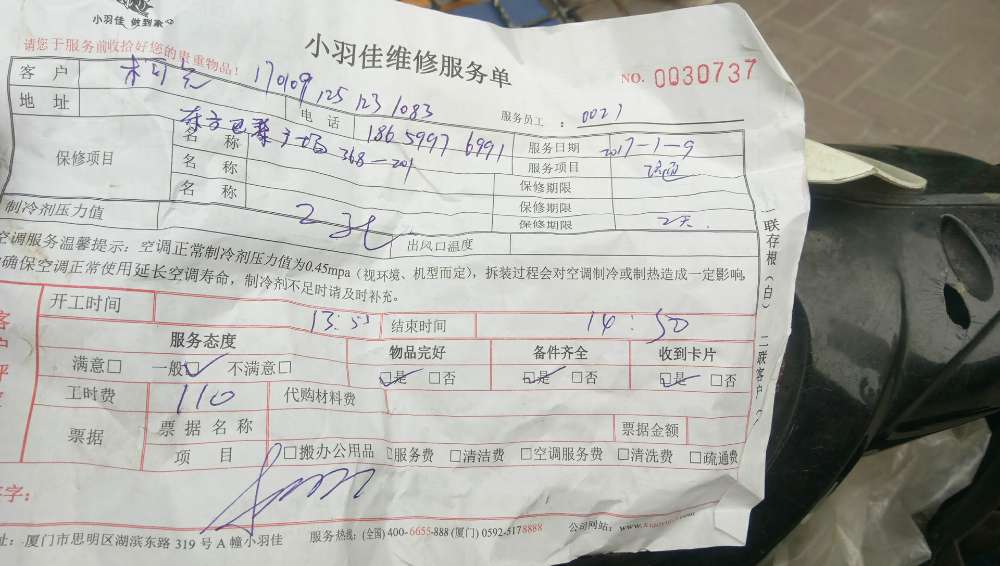 小羽佳 做到家
请您于服务前收拾好您的贵重物品!
小羽佳维修服务单
NO. 0030737
客 户 170109 125 123 1083
服务员工 : 0027
地 址 电 话 186 5997 6991
368-201
保修项目
名 称
名 称
名 称
服务日期 2017-1-9
服务项目 疏通
保修期限
保修期限
保修期限 2天
制冷剂压力值 出风口温度
空调服务温馨提示：空调正常制冷剂压力值为0.45mpa（视环境、机型而定），拆装过程会对空调制冷或制热造成一定影响，
确保空调正常使用延长空调寿命，制冷剂不足时请及时补充。
开工时间 13:53 结束时间 14:50
服务态度 物品完好 备件齐全 收到卡片
满意□ 一般☑ 不满意□ ☑是 □否 ☑是 □否 ☑是 □否
工时费 110 代购材料费
票据 票据名称 票据金额
项 目 □搬办公用品 □服务费 □清洁费 □空调服务费 □清洗费 □疏通费
签字：
址：厦门市思明区湖滨东路 319 号 A 幢小羽佳 服务热线：(全国) 400-6655-888 (厦门) 0592-5178888 公司网站：
一联存根（白） 二联客户